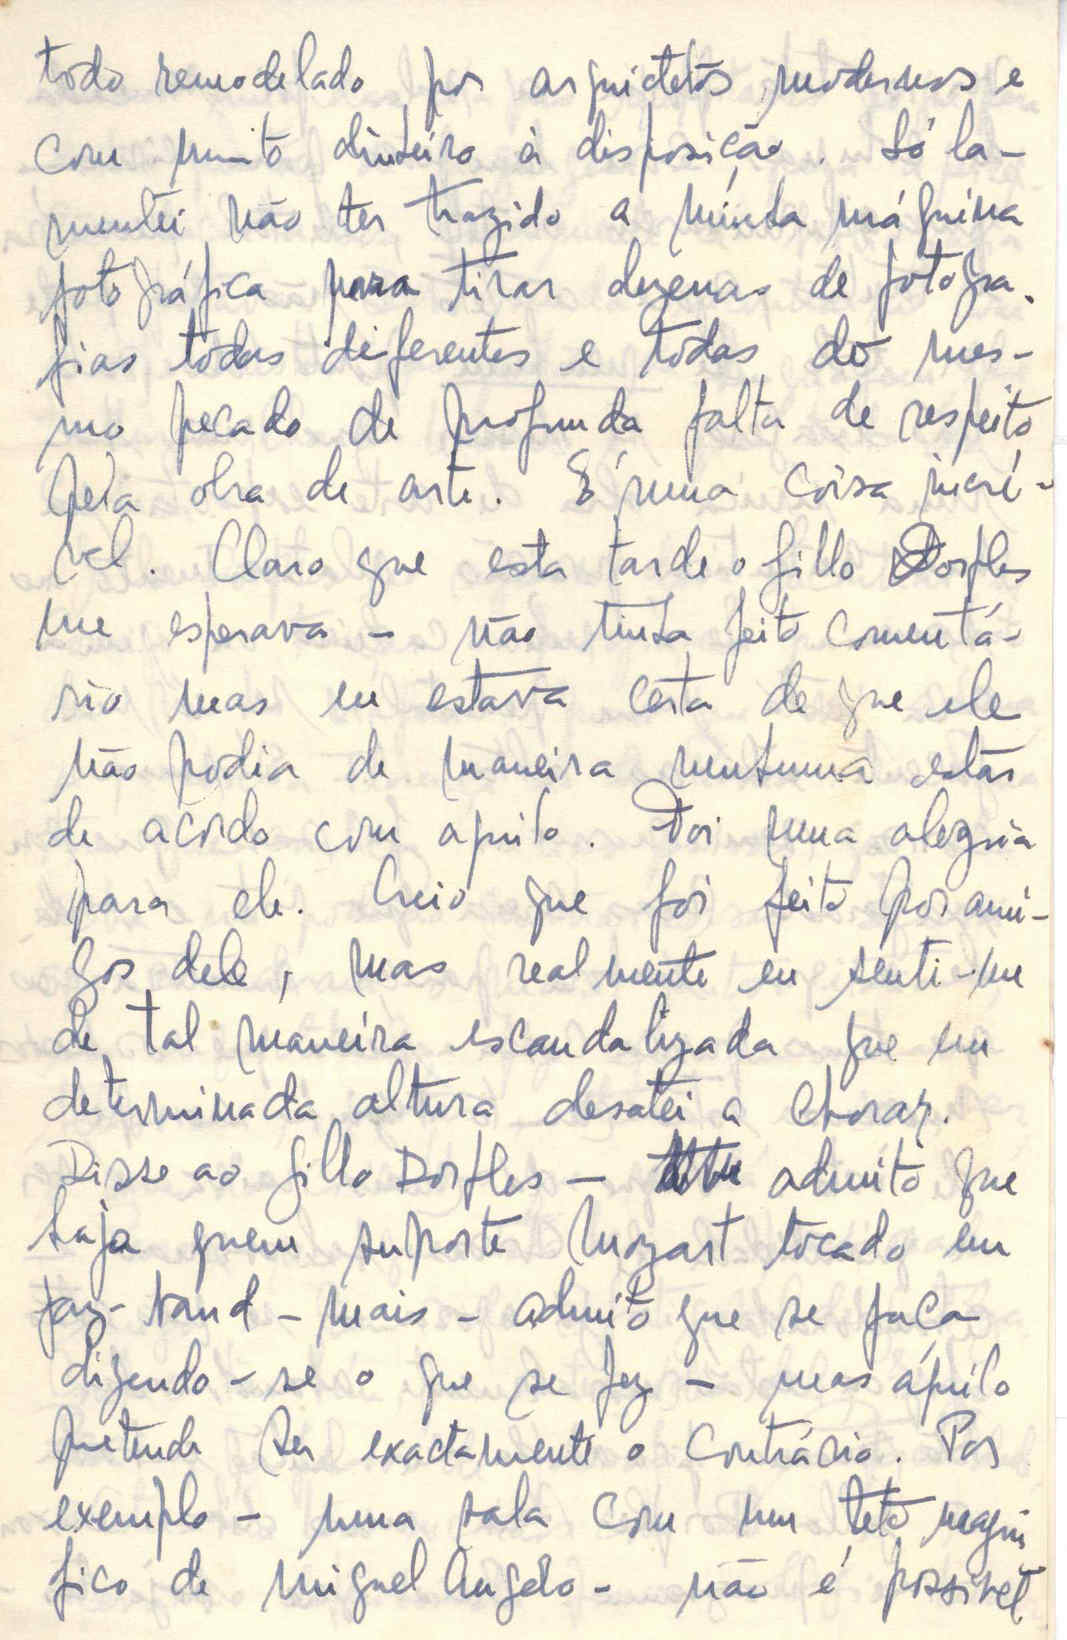 todo remodelado por arquitetos modernos e
com muito dinheiro à disposição. Só la-
mentei não ter trazido a minha máquina
fotográfica para tirar dezenas de fotogra-
fias todas diferentes e todas do mes-
mo pecado de profunda falta de respeito
pela obra de arte. É uma coisa incrí-
vel. Claro que esta tarde o Gillo Dorfles
me esperava – não tinha feito comentá-
rio mas eu estava certa de que ele
não podia de maneira nenhuma estar
de acordo com aquilo. Foi uma alegria
para ele. Creio que foi feito por ami-
gos dele, mas realmente eu senti-me
de tal maneira escandalizada que em
determinada altura desatei a chorar.
Disse ao Gillo Dorfles – admito que
haja quem suporte Mozart tocado em
jaz-band – mais – admito que se faça
dizendo-se o que se fez – mas aquilo
pretende ser exactamente o contrário. Por
exemplo – uma sala com um teto magní
fico de Miguel Angelo – não é possível